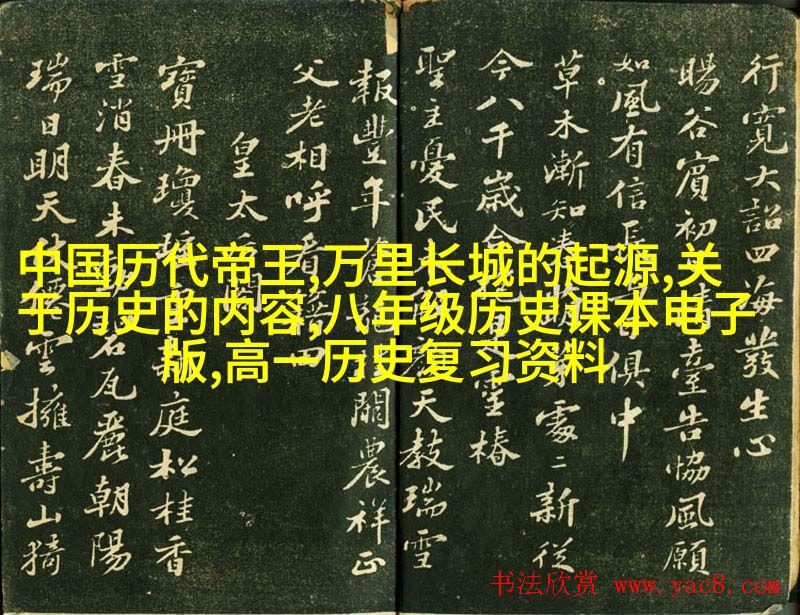 行寬大詔四海發生心
暘谷賓初清臺告協風願
如風有信長俱中
草木漸知春處二新從
今八千歲合靈椿
聖主憂民天教瑞雪
報豐年關農祥正
父老相呼看
皇太后閣
寶冊瓊庭松桂香
雪消春未碧瓦麗朝陽
瑞日明天雲擁壽山猗
中国历代帝王,万里长城的起源,关
于历史的内容,八年级历史课本电子
版,高一历史复习资料
书法欣赏 www.yac8.com